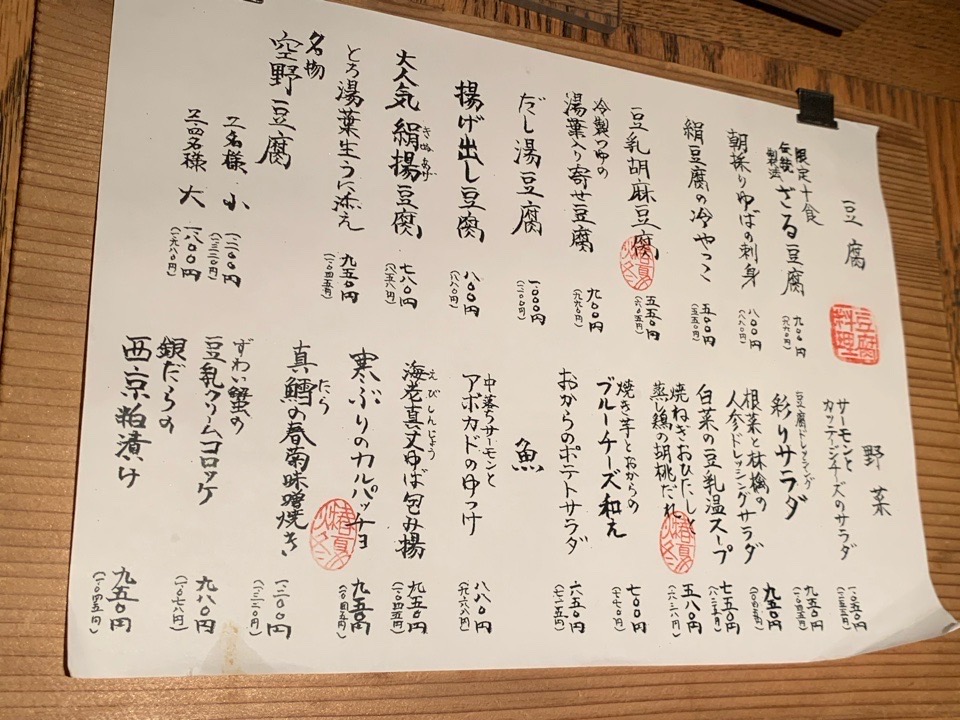 豆腐
限定十食
伝統製法
ざる豆腐
九〇〇円
(九九〇円)
朝採りゆばの刺身
八〇〇円
(八八〇円)
絹豆腐の冷やっこ
五〇〇円
(五五〇円)
豆乳胡麻豆腐
五五〇円
(六〇五円)
冷製つゆの
湯葉入り寄せ豆腐
九〇〇円
(九九〇円)
だし湯豆腐
一〇〇〇円
(一一〇〇円)
揚げ出し豆腐
八〇〇円
(八八〇円)
大人気 絹揚豆腐
きぬあげ
七八〇円
(八五八円)
とろ湯葉生うに添え
九五〇円
(一〇四五円)
名物
空野豆腐
二名様 小
一二〇〇円
(一三二〇円)
三四名様 大
一八〇〇円
(一九八〇円)
豆腐料理
野菜
サーモンと
カッテージチーズのサラダ
一〇五〇円
(一一五五円)
豆腐ドレッシング
彩りサラダ
九五〇円
(一〇四五円)
根菜と林檎の
人参ドレッシングサラダ
九五〇円
(一〇四五円)
白菜の豆乳温スープ
七五〇円
(八二五円)
焼ねぎおひたしと
蒸し鶏の胡桃だれ
五八〇円
(六三八円)
焼き芋とおからの
ブルーチーズ和え
七〇〇円
(七七〇円)
おからのポテトサラダ
六五〇円
(七一五円)
魚
中落ちサーモンと
アボカドのゆっけ
八八〇円
(九六八円)
海老真丈ゆば包み揚
えびしんじょう
九五〇円
(一〇四五円)
寒ぶりのカルパッチョ
九五〇円
(一〇四五円)
真鱈の春菊味噌焼き
たら
一二〇〇円
(一三二〇円)
ずわい蟹の
豆乳クリームコロッケ
九八〇円
(一〇七八円)
銀だらの
西京粕漬け
九五〇円
(一〇四五円)